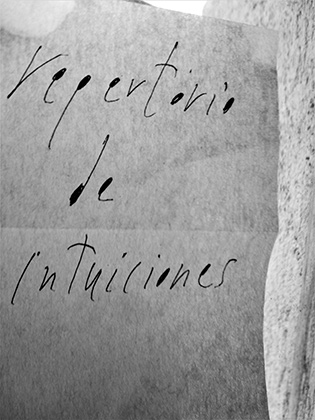 repertorio
de
intuiciones